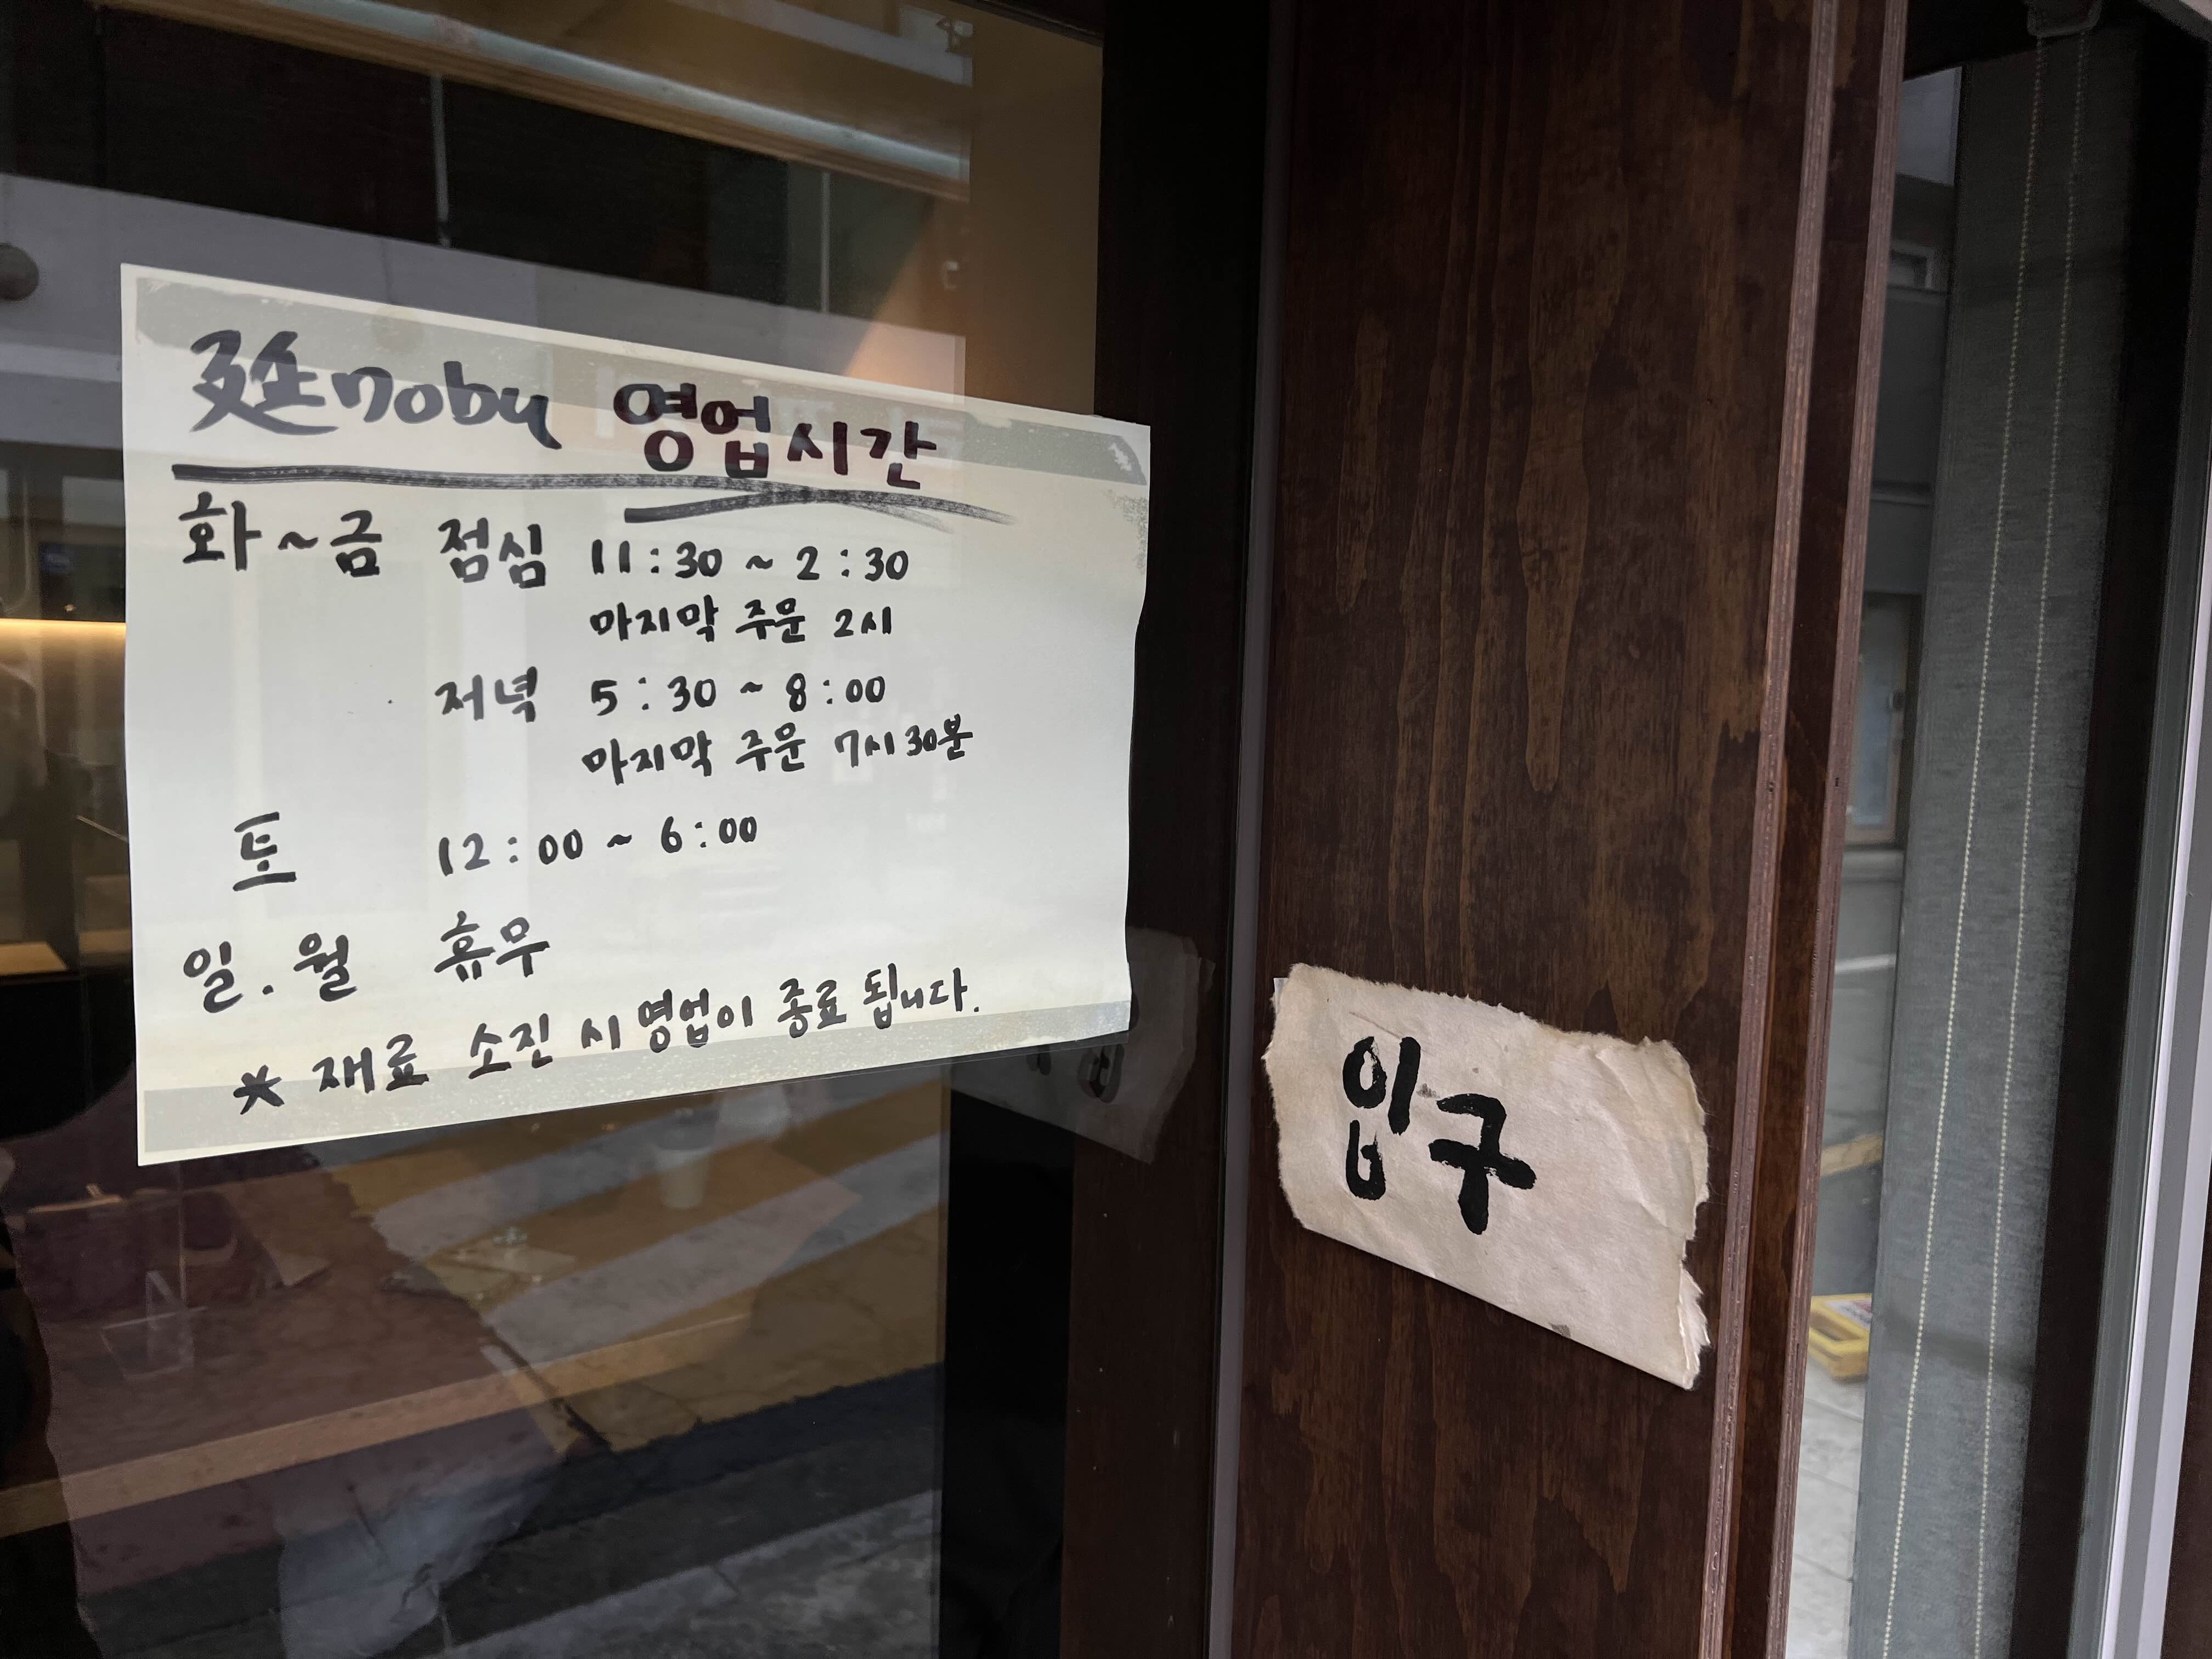 延nobu 영업시간
화~금 점심 11:30 ~ 2:30
마지막 주문 2시
저녁 5:30 ~ 8:00
마지막 주문 7시 30분
토 12:00 ~ 6:00
일.월 휴무
* 재료 소진 시 영업이 종료 됩니다.
입구